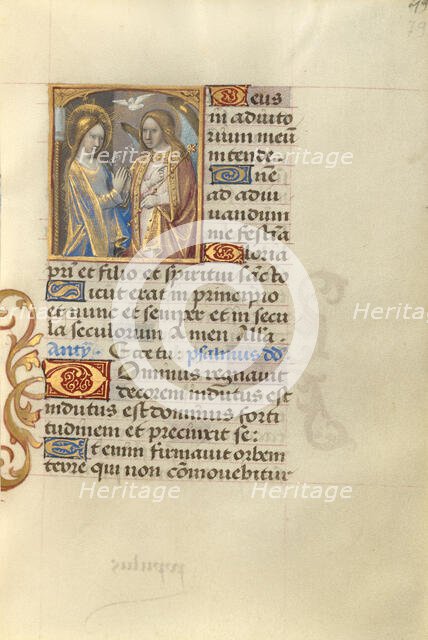 79
79
Deus
in adiuto
rium meū
intende.
Dn̄e
ad adiu
uandum
me festīa
Gloria
pr̄i et filio et spiritui sancto
Sicut erat in principio
et nunc et semper et in secu
la seculorum Amen Alla.
Anty. Ecce tu. psalmus dd
Dominus regnauit
decorem indutus est
indutus est dominus forti
tudinem et precinxit se:
Et enim firmauit orbem
terre qui non cōmouebitur
populus
Heritage
Heritage
Heritage
Heritage
Heritage
Heritage
Heritage
Heritage